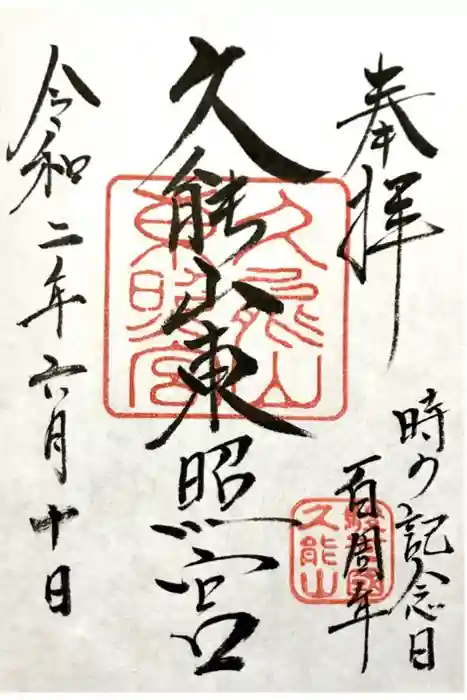 奉拝
時の記念日
百周年
久能山東照宮
令和二年六月十日
久能山
東照宮
駿河国
久能山